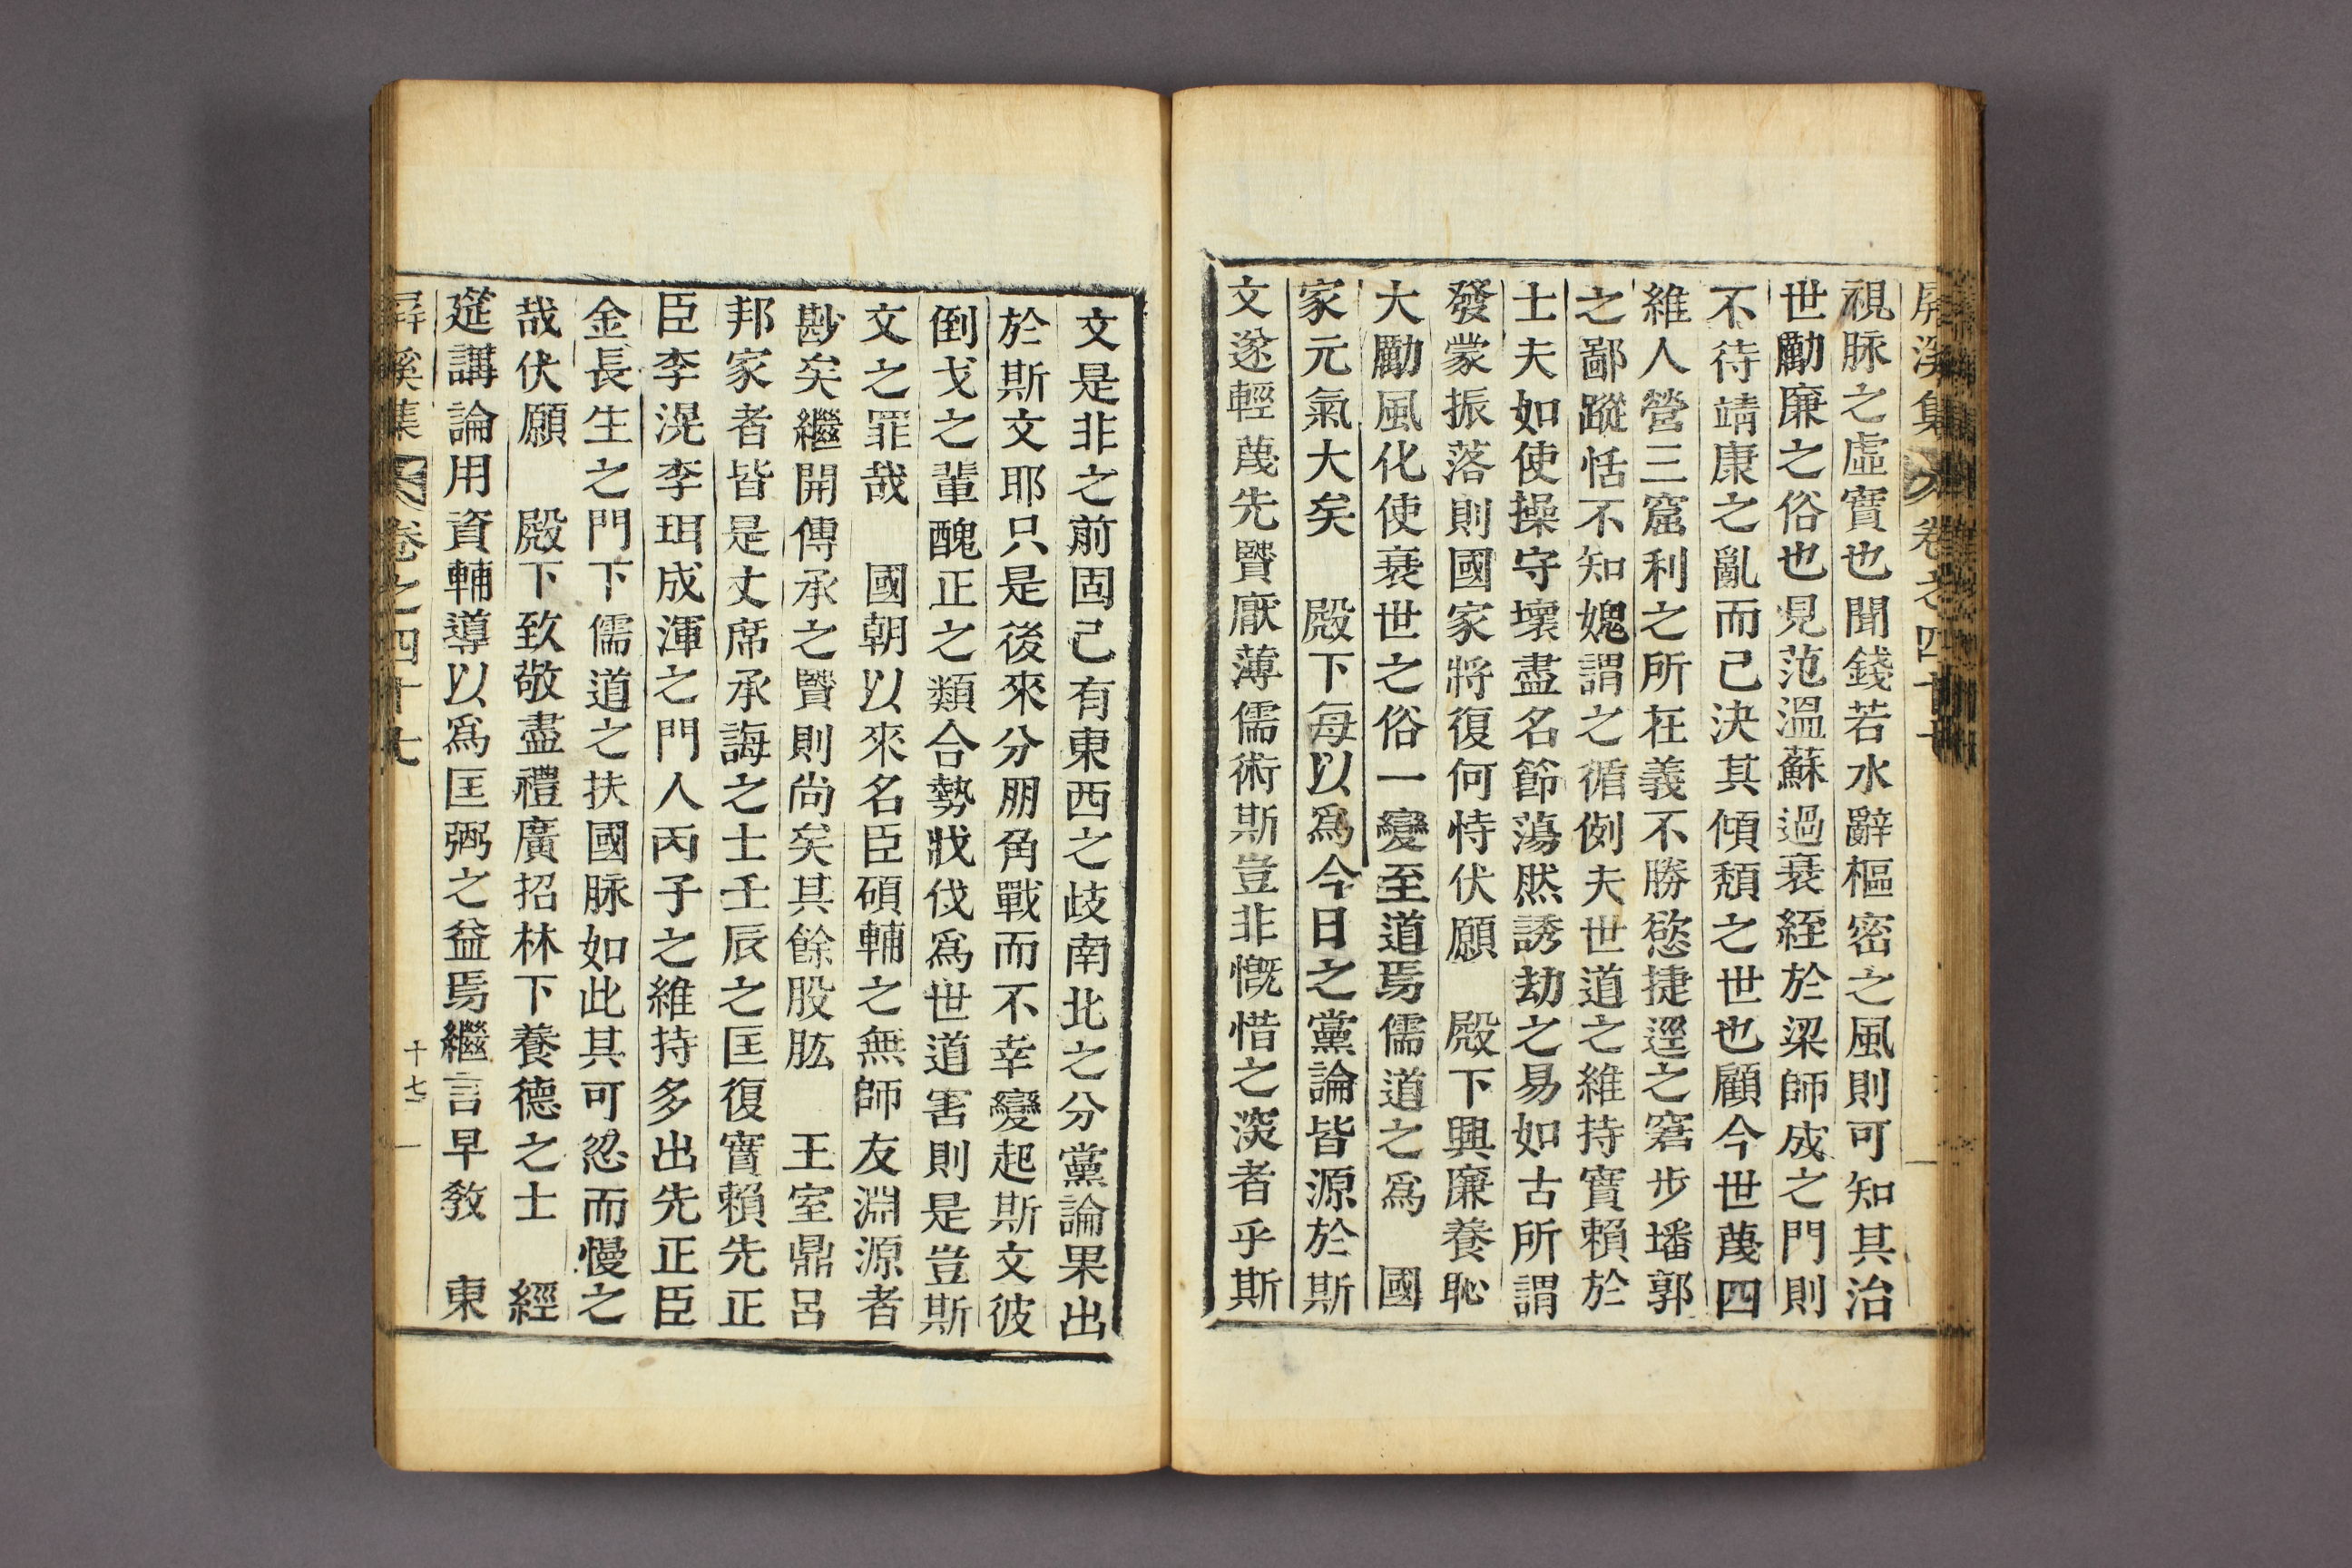 屛溪集 卷之四十七
視脉之虛實也聞錢若水辭樞密之風則可知其治
世勵廉之俗也見范溫蘇過衰絰於梁師成之門則
不待靖康之亂而已決其傾頹之世也顧今世蔑四
維人營三窟利之所在義不勝慾捷逕之窘步墦郭
之鄙蹤恬不知媿謂之循例夫世道之維持實賴於
士夫如使操守壞盡名節蕩然誘劫之易如古所謂
發蒙振落則國家將復何恃伏願 殿下興廉養恥
大勵風化使衰世之俗一變至道焉儒道之爲 國
家元氣大矣 殿下每以爲今日之黨論皆源於斯
文遂輕蔑先賢厭薄儒術斯豈非慨惜之深者乎斯
文是非之前固已有東西之歧南北之分黨論果出
於斯文耶只是後來分朋角戰而不幸變起斯文彼
倒戈之輩醜正之類合勢戕伐爲世道害則是豈斯
文之罪哉 國朝以來名臣碩輔之無師友淵源者
尠矣繼開傳承之賢則尚矣其餘股肱 王室鼎呂
邦家者皆是丈席承誨之士壬辰之匡復實賴先正
臣李滉李珥成渾之門人丙子之維持多出先正臣
金長生之門下儒道之扶國脉如此其可忽而慢之
哉伏願 殿下致敬盡禮廣招林下養德之士 經
筵講論用資輔導以爲匡弼之益焉繼言早敎 東
屛溪集 卷之四十七 十七